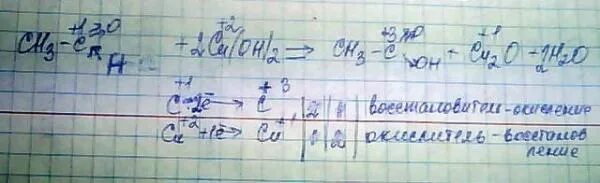 CH₃ - C⁺¹ O H + 2Cu⁺²(OH)₂ ⇒ CH₃ - C⁺³ O OH + Cu₂⁺¹O + 2H₂O
C⁺¹ - 2e → C⁺³ | 2 | 1 | восстановитель - окисление
Cu⁺² + 1e → Cu⁺¹ | 1 | 2 | окислитель - восстанов
ление